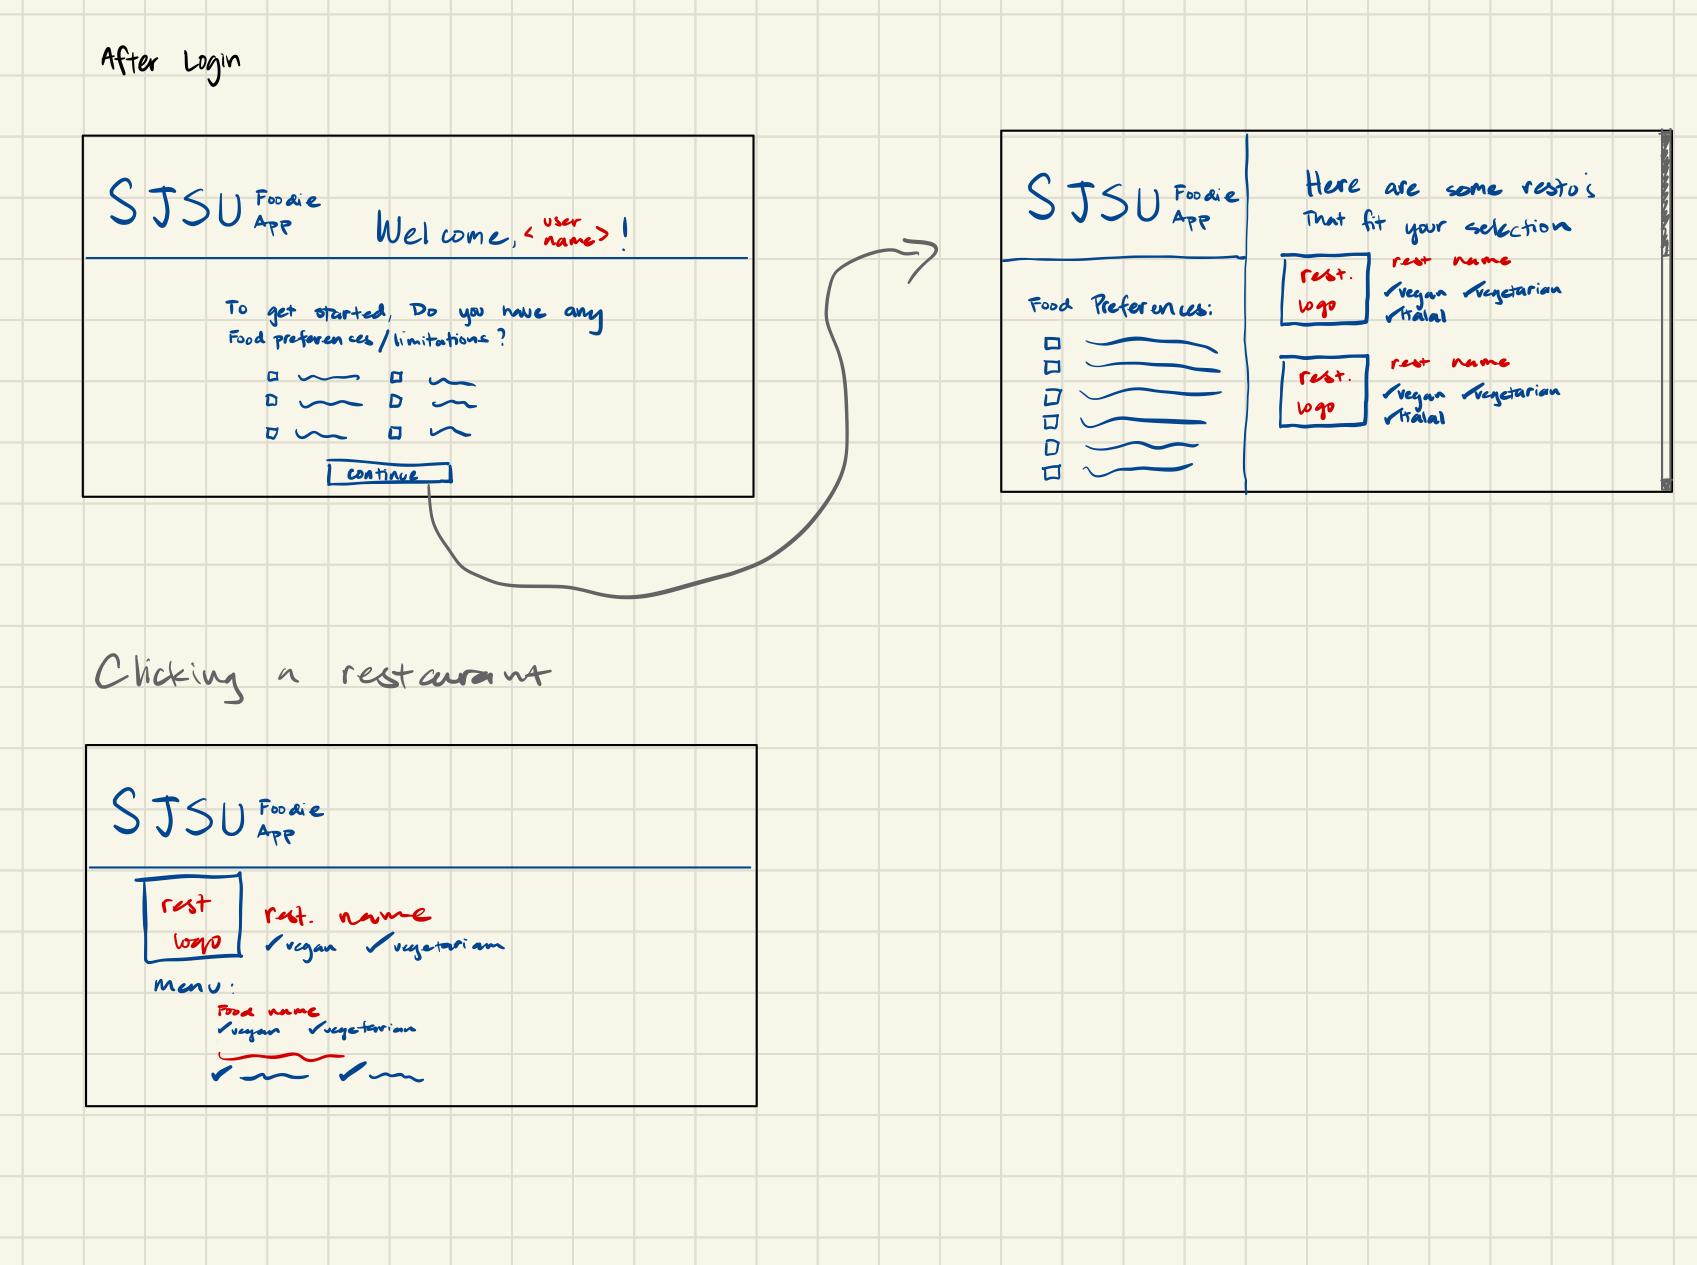 After Login
SJSU Foodie
App
Welcome, <user
name>!
To get started, Do you have any
Food preferences/limitations?
continue
SJSU Foodie
App
Food Preferences:
Here are some resto's
That fit your selection
rest.
logo
rest name
✓vegan ✓vegetarian
✓Halal
rest.
logo
rest name
✓vegan ✓vegetarian
✓Halal
Clicking a restaurant
SJSU Foodie
App
rest
logo
rest. name
✓vegan ✓vegetarian
Menu:
Food name
✓vegan ✓vegetarian